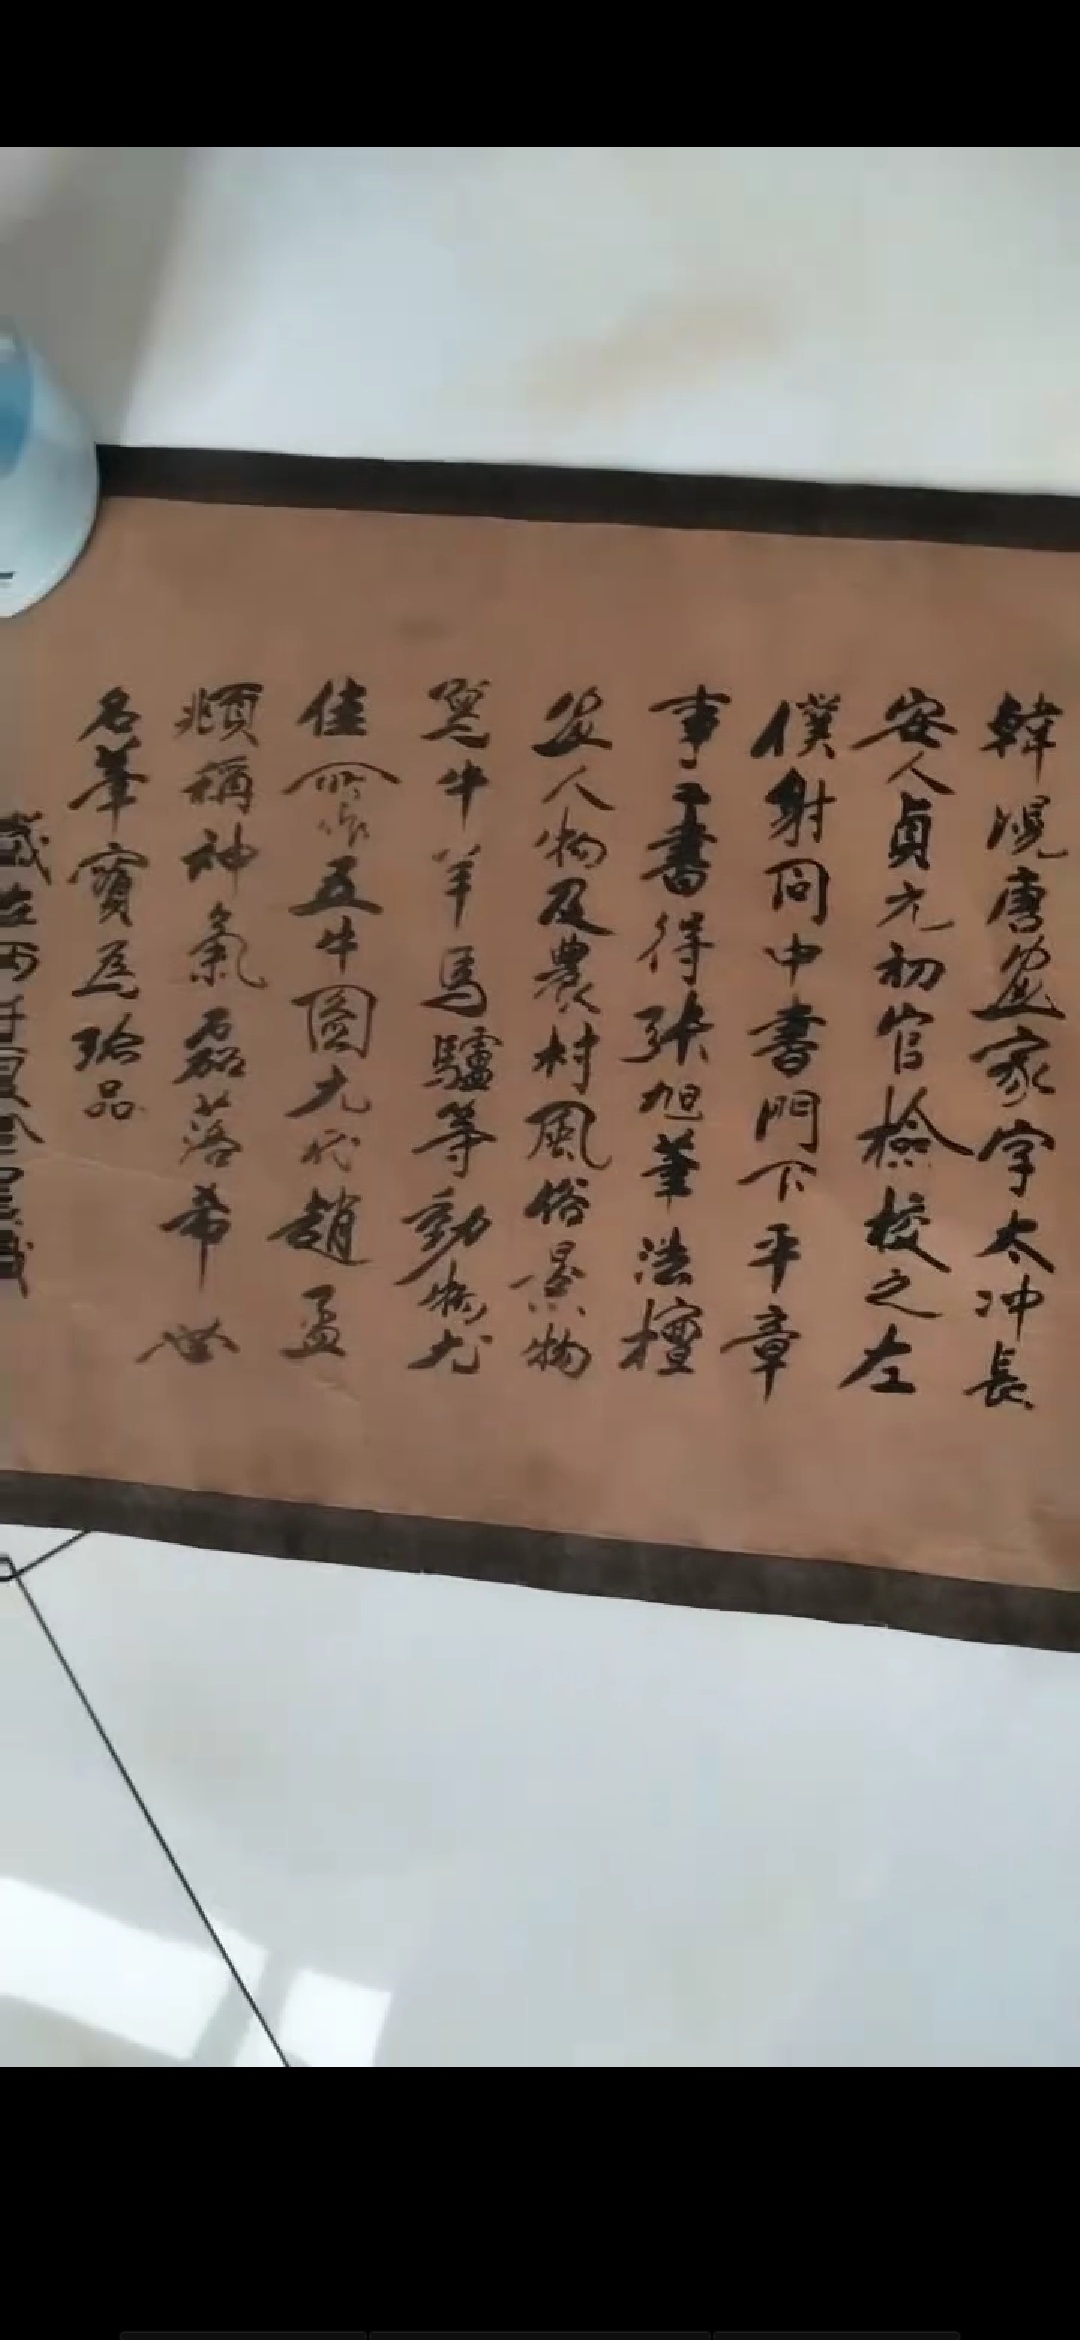 韓滉唐畫家字太冲長
安人貞元初官檢校之左
僕射同中書門下平章
事工書得張旭筆法擅
人物及農村風俗景物
牛羊馬驢等動物尤
佳所作五牛圖元代趙孟
頫稱神氣磊落希世
名筆寶為珍品